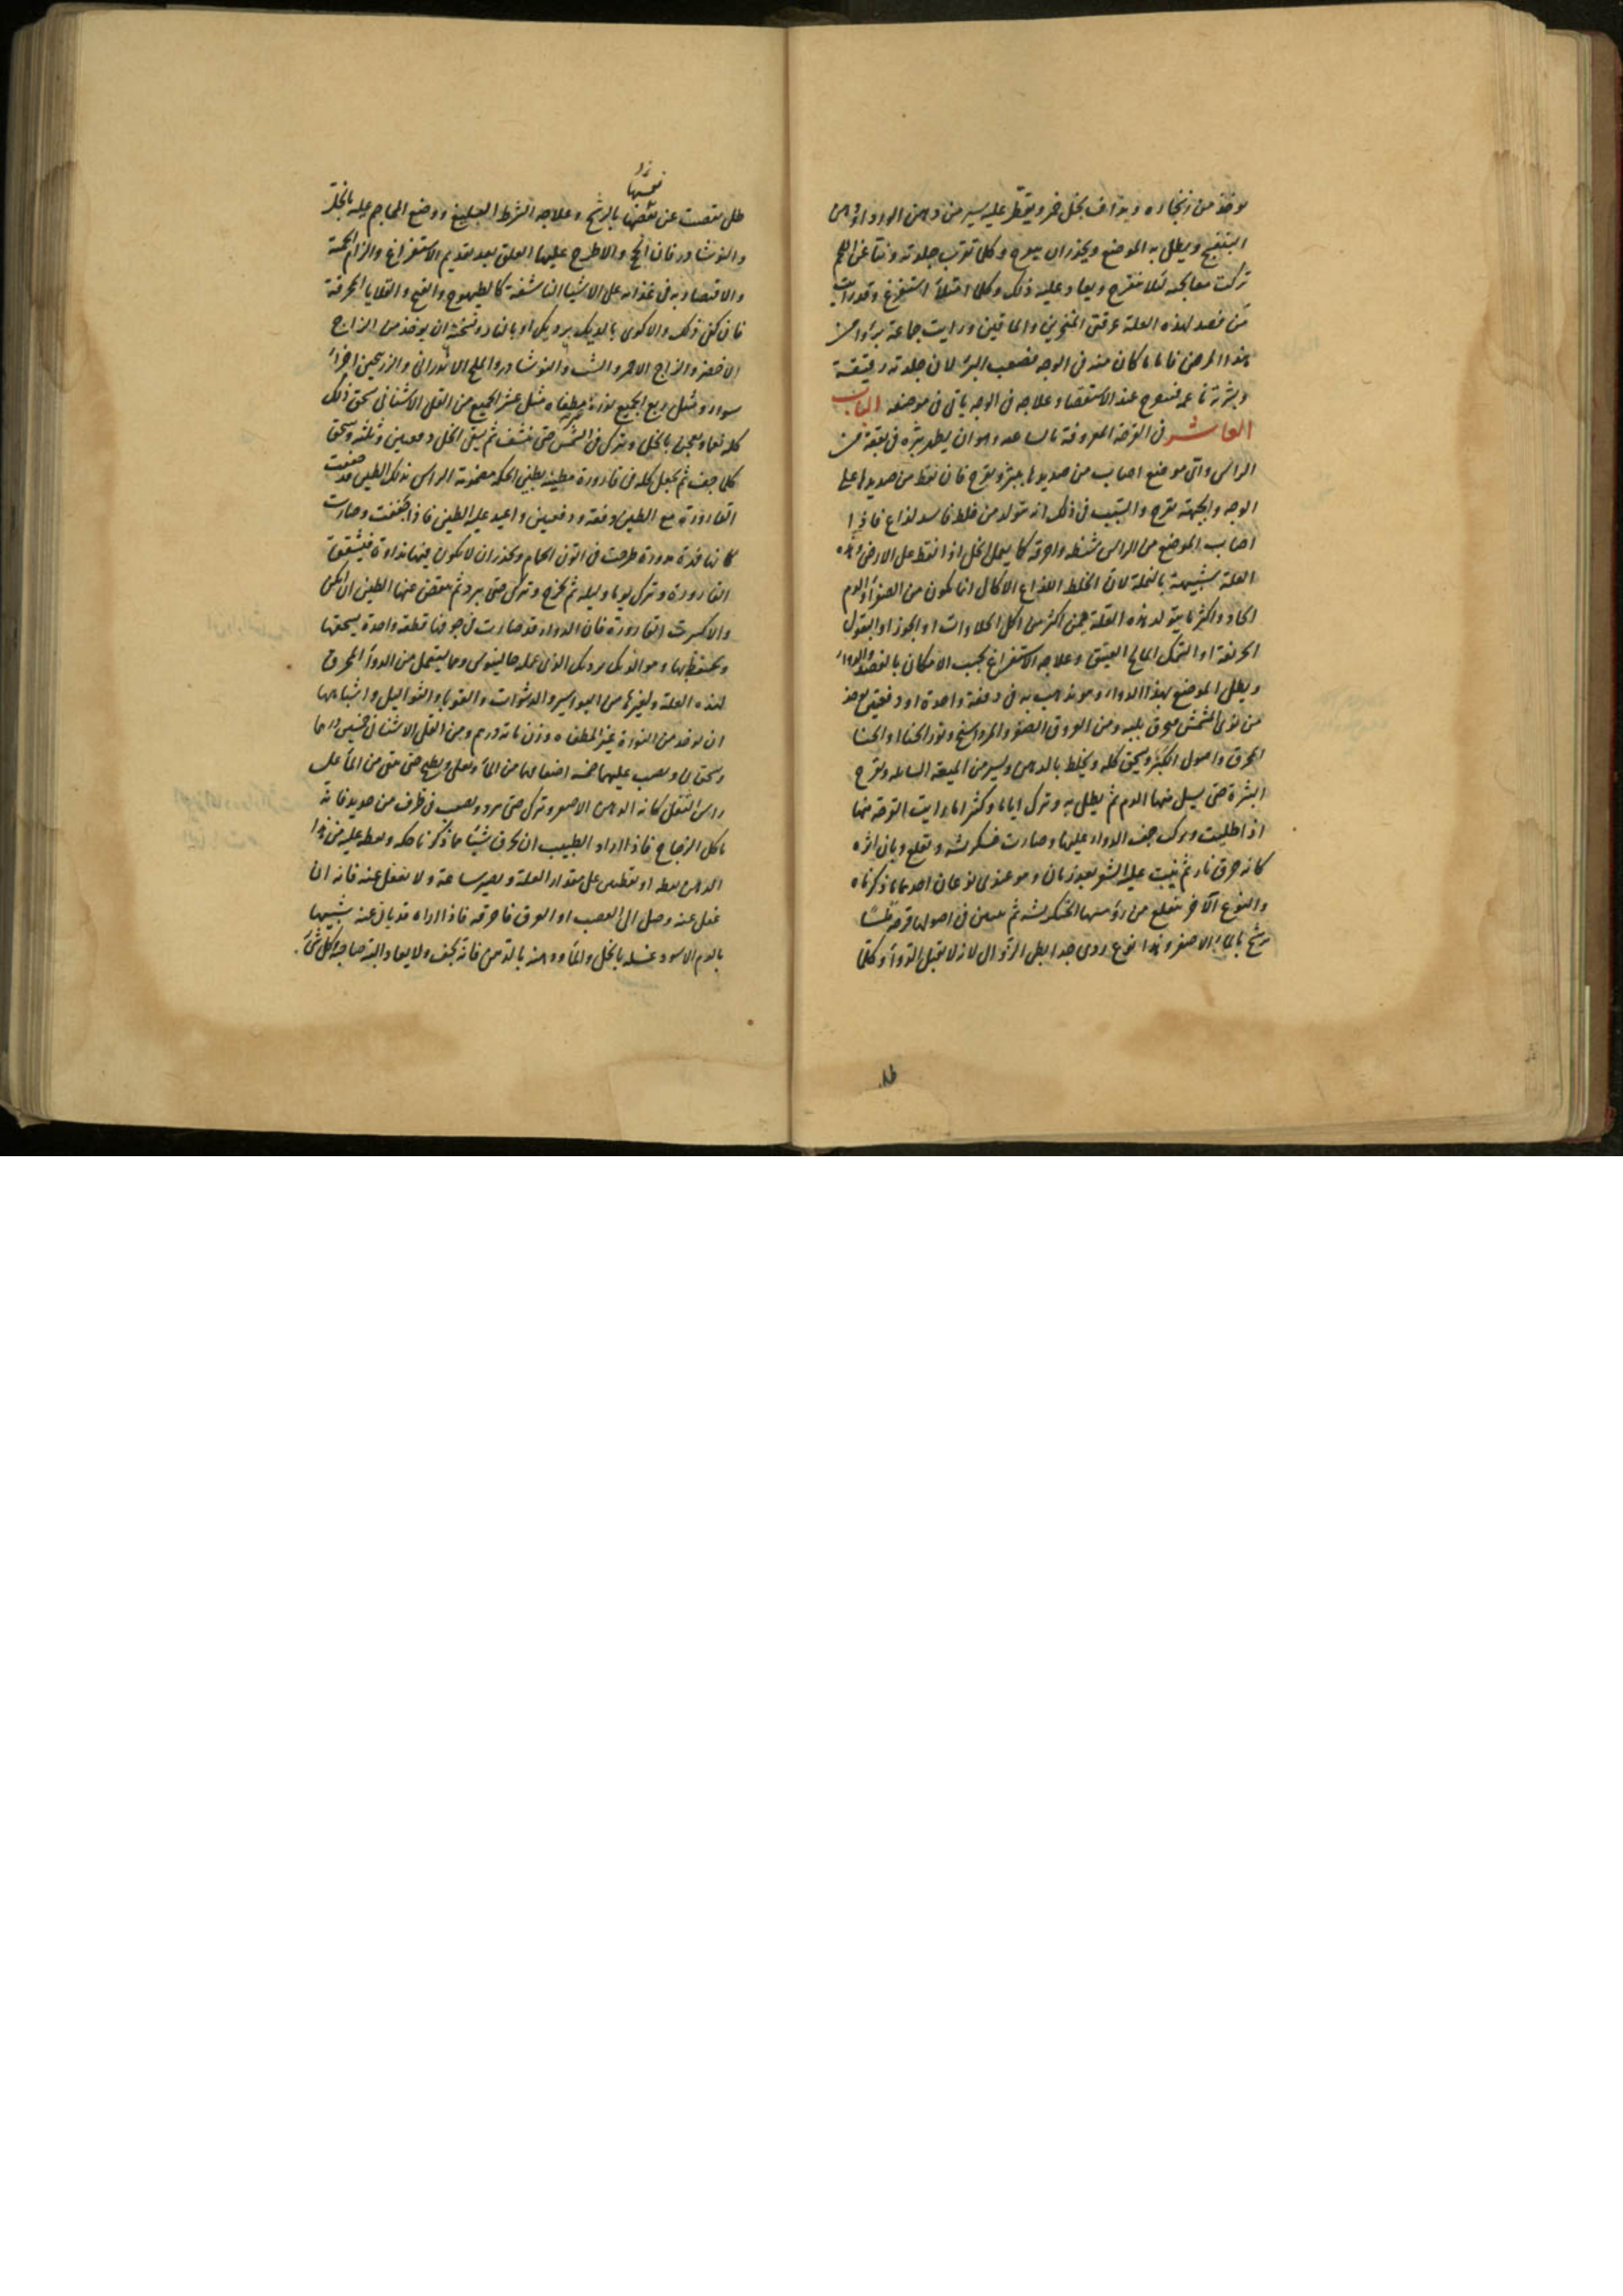 يوخذ من زنجاره ويداف بخل خمر ويقطر عليه يسير من دهن الورد او دهن
البنفسج ويطلى به الموضع ويحذر ان يقرح وكلما توتب جلدته ونتا عن اللحم
تركت معالجته لئلا يتقرح ويعاد عليه ذلك وكلما امتلأ استفرغ وقد رايت
من فصد لهذه العلة عرقى المنخرين والماقين ورايت جماعة برؤا من
هذا المرض فاما ما كان منه فى الوجه فصعب البرؤ لان جلدته رقيقة
وبشرته ناعمه فتقرح عند الاستقصاء وعلاجه فى الوجه ياتى فى موضعه الباب
العاشر فى القرحة المعروفة بالساعيه وهو ان يظهر بثره فى بقعة من
الراس واى موضع اصاب من صديدها بثر وتقرح فان نقط من صديدها على
الوجه والجبهة تقرح والسبب فى ذلك انه يتولد من خلط فاسد لذاع فاذا
اصاب الموضع من الراس شيطه واحرقه كما يعمل الخل اذا نقط على الارض وهذه
العلة شبيهة بالنملة لان الخلط اللذاع الاكال انما يكون من الصفراء والدم
الحاد واكثر ما يتولد هذه العلة فيمن اكثر من اكل الحلاوات او الجوز او البقول
الحريفة او السمك المالح العتيق وعلاجه الاستفراغ بحسب الامكان بالفصد والدواء
ويطلى الموضع بهذا الدواء وهو يذهب به فى دفعة واحدة او دفعتين يوخذ
من نوى المشمش محرق بلبه ومن العروق الصفر والمرداسنج وورق الحناء او الحنا
المحرق واصول الكبر ويسحق كله ويخلط بالدهن ويسير من الميعه السايله ويقرح
البثرة حتى يسيل منها الدم ثم يطلى به وترك اياما وكثيرا ما رايت القرحة منها
اذا طليت وترك جف الدواء عليها وصارت خشكريشه وتقلع وبان اثره
كانه حرق نار ثم ينبت عليه الشعر بعد زمان وهو عندى نوعان احدهما ما ذكرناه
والنوع الآخر يتقلع من رؤسها الخشكريشه ثم يتبين فى اصولها قرحة
ترشح بالماء الاصفر وهذا نوع ردى جدا بطى الزوال لانه لا يقبل الدواء وكلما
طلى تقصت عن تقضها بالرشح وعلاجه الشرط البليغ ووضع المحاجم عليه بالخل
والنوشادر فان انجح والا طرح عليها العلق بعد تقديم الاستفراغ والزام الحمية
والاقتصار به فى غذائه على الاشيا الناشفة كالطيهوج والقبج والقلايا المحرقة
فان كفى ذلك والا كوى بالديك برديك او بالنار ونسخته ان يوخذ من الزاج
الاخضر والزاج الاحمر والشب والنوشادر والملح الاندرانى والزرنيخين اجزاء
سواء ومثل ربع الجميع نورة مطفاه مثل عشر الجميع من القلى الاشنانى يسحق ذلك
كله نعما ويعجن بالخل ويترك فى الشمس حتى ينشف ثم يسقى الخل دفعتين وثلثه ويسحق
كلما جف ثم يجعل كله فى قارورة مطينه بطين الحكمه مضمومة الراس بذلك الطين
القارورة مع الطين دفعة ودفعتين واعيد عليه الطين فاذا جففت وصارت
كانها قدرة مدورة طرحت فى اتون الحمام ويحذر ان لا يكون فيها نداوة فينشقق
القارورة وترك يوما وليله ثم تخرج وتترك حتى يبرد ثم ينقض عنها الطين ان امكن
والا كسرت القارورة فان الدواء قد صارت فى جوفها قطعة واحدة يسحقها
ويحتفظ بها وهو الديك برديك الذى عمله جالينوس ومما يستعمل من الدواء المحرق
لهذه العلة ولغيرها من البواسير والوشوات والقوبا والثواليل واشباهها
ان يوخذ من النورة غير المطفاه وزن مائة درهم ومن القلى الاشنان خمسين درهما
ويسحقان ويصب عليهما خمسه اضعافها من الماء ويغلى ويطبخ حتى يبقى من الماء على
راس الثفل كانه الدهن الاصفر وترك حتى يبرد ويصب فى ظرف من حديد فانه
ياكل الزجاج فاذا اراد الطبيب ان يحرق شيئا مما ذكرنا حكه ونقط عليه من هذا
الدهن نقطه او نقطتين على مقدار العلة ويصبر ساعة ولا يغفل عنه فانه ان
غفل عنه وصل الى العصب او العرق فاحرقه فاذا اراه قد بان عنه شبيها
بالدم الاسود غسله بالخل والماء ودهنه بالدهن فانه يجف ولا يعاود البتة صاحبه كل شئ.